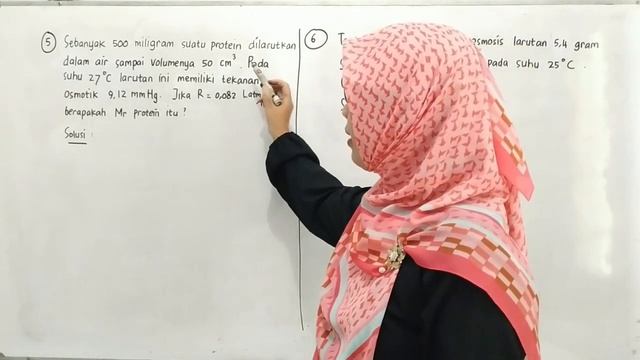 5 Sebanyak 500 miligram suatu protein dilarutkan
dalam air sampai volumenya 50 cm³. Pada
suhu 27°C larutan ini memiliki tekanan
osmotik 9,12 mmHg. Jika R = 0,082 Latm
berapakah Mr protein itu ?
Solusi :
6
osmosis larutan 5,4 gram
pada suhu 25°C .